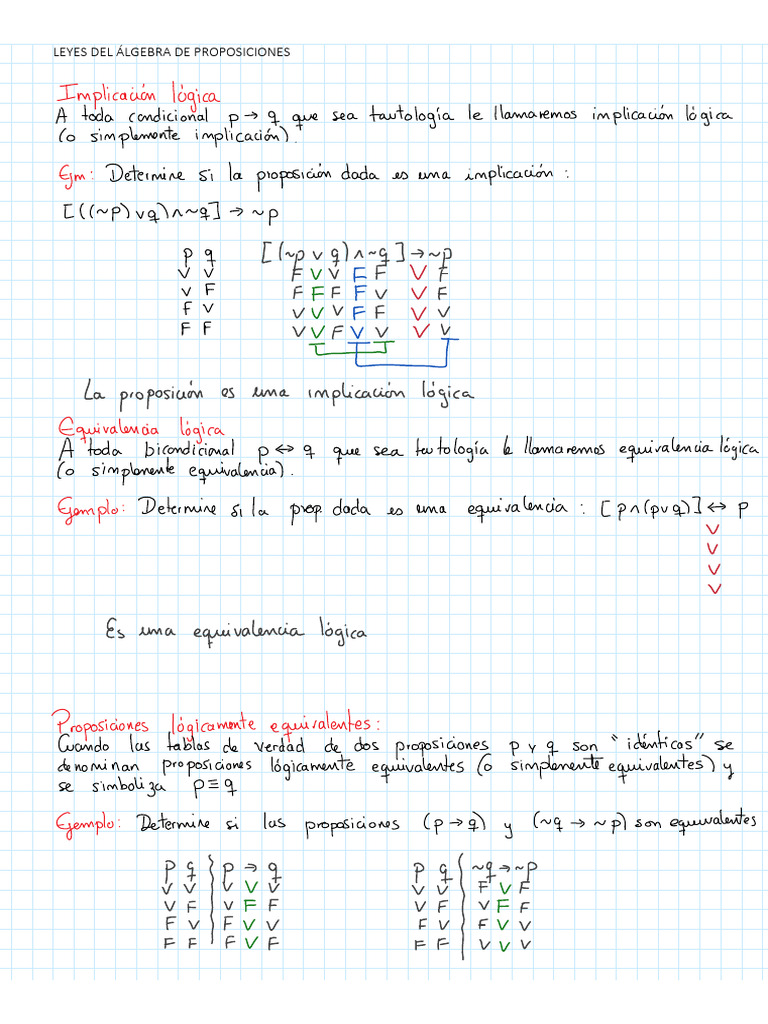 LEYES DEL ÁLGEBRA DE PROPOSICIONES
Implicación lógica
A toda condicional p → q que sea tautología le llamaremos implicación lógica
(o simplemente implicación).
Ejm: Determine si la proposición dada es una implicación :
[((~p) ∨ q) ∧ ~q] → ~p
p q [(~p ∨ q) ∧ ~q] → ~p
V V F V V F F V F
V F F F F F V V F
F V V V V F F V V
F F V V F V V V V
La proposición es una implicación lógica
Equivalencia lógica
A toda bicondicional p ↔ q que sea tautología le llamaremos equivalencia lógica
(o simplemente equivalencia).
Ejemplo: Determine si la prop. dada es una equivalencia : [p ∧ (p ∨ q)] ↔ p
V
V
V
V
Es una equivalencia lógica
Proposiciones lógicamente equivalentes:
Cuando las tablas de verdad de dos proposiciones p y q son "idénticas" se
denominan proposiciones lógicamente equivalentes (o simplemente equivalentes) y
se simboliza p ≡ q
Ejemplo: Determine si las proposiciones (p → q) y (~q → ~p) son equivalentes
p q p → q p q ~q → ~p
V V V V V V V F V F
V F V F F V F V F F
F V F V V F V F V V
F F F V F F F V V V